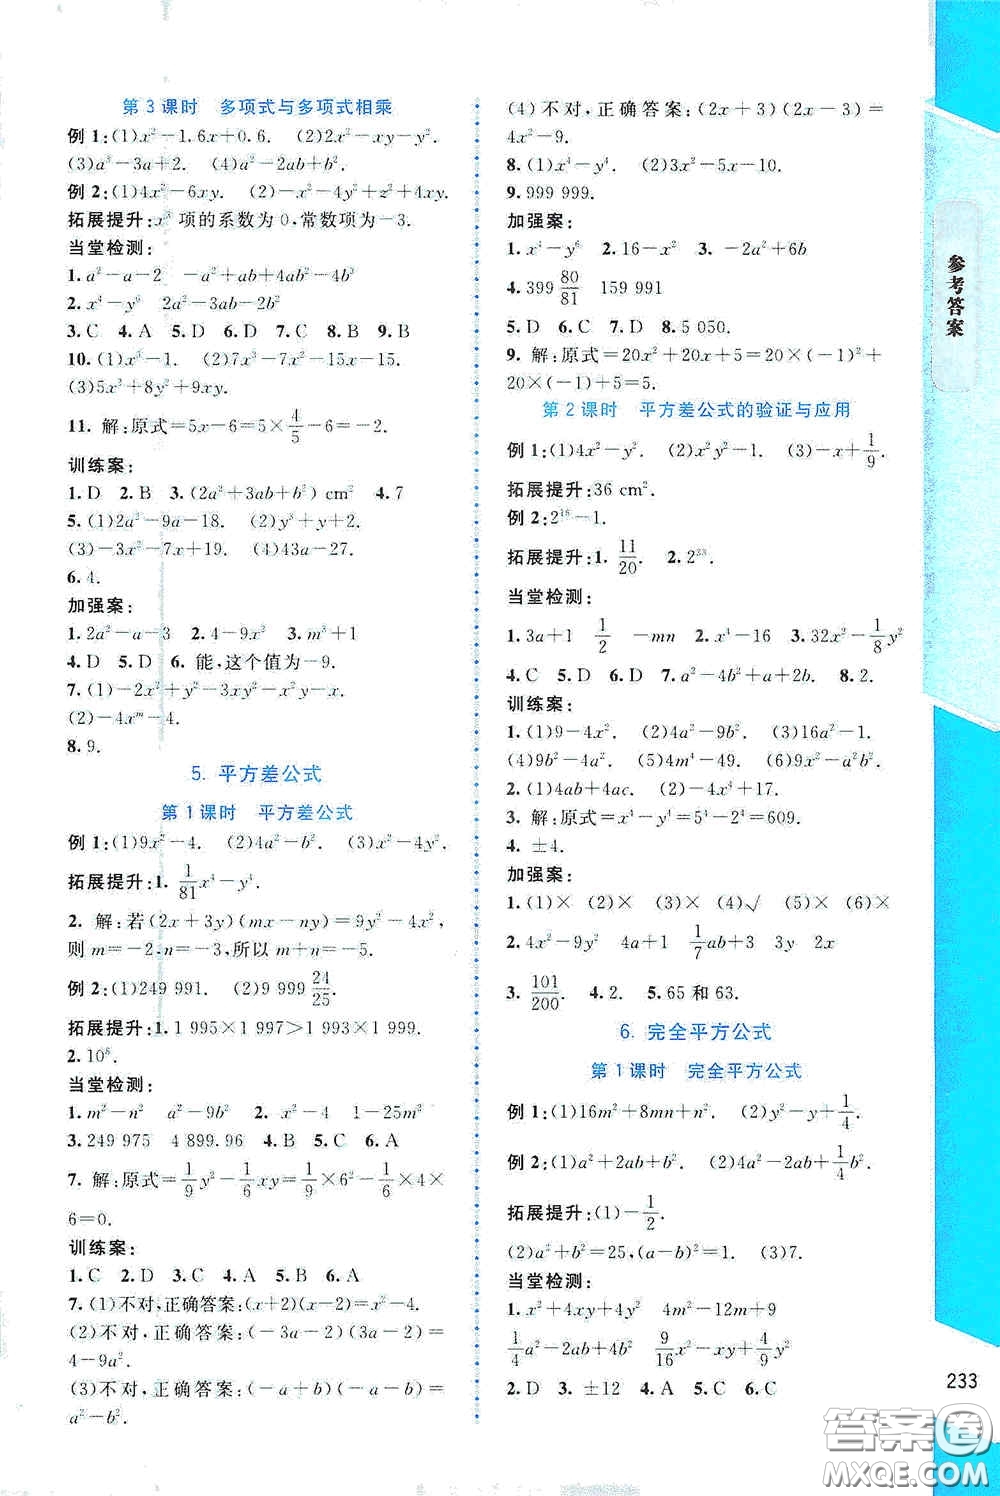 第3课时 多项式与多项式相乘
例1:(1)x²-1.6x+0.6. (2)2x²-xy-y².
(3)a³-3a+2. (4)a²-2ab+b².
例2:(1)4x²-6xy. (2)-x²-y²+z²+4xy.
拓展提升:x³项的系数为0,常数项为-3.
当堂检测:
1. a²-a-2 -a²+ab+4a-4b
2. x²-y² 2a²-3ab-2b²
3. C 4. A 5. D 6. D 7. C 8. B 9. B
10. (1)x³-1. (2)7x³-7x²-15x-15.
(3)5x²+8y²+9xy.
11. 解:原式=5x-6=5×4/5-6=-2.
训练案:
1. D 2. B 3. (2a²+3ab+b²) cm² 4. 7
5. (1)2a²-9a-18. (2)y³+y+2.
(3)-3x²-7x+19. (4)43a-27.
6. 4.
加强案:
1. 2a²-a-3 2. 4-9x² 3. m³+1
4. D 5. D 6. 能,这个值为-9.
7. (1)-2x³+y³-3xy²-x²y-x²y.
(2)-4xᵐ-4.
8. 9.
5. 平方差公式
第1课时 平方差公式
例1:(1)9x²-4. (2)4a²-b². (3)x²-4y².
拓展提升:1. 1/81x⁴-y⁴.
2. 解:若(2x+3y)(mx-ny)=9y²-4x²,
则m=-2,n=-3,所以m+n=-5.
例2:(1)249 991. (2)9 999 24/25.
拓展提升:1. 1 995×1 997>1 993×1 999.
2. 10⁸.
当堂检测:
1. m²-n² a²-9b² 2. x²-4 1-25m²
3. 249 975 4 899.96 4. B 5. C 6. A
7. 解:原式=1/9y²-1/6xy=1/9×6²-1/6×4×
6=0.
训练案:
1. C 2. D 3. C 4. A 5. B 6. A
7. (1)不对,正确答案:(x+2)(x-2)=x²-4.
(2)不对,正确答案:(-3a-2)(3a-2)=
4-9a².
(3)不对,正确答案:(-a+b)(-a-b)=
a²-b².
(4)不对,正确答案:(2x+3)(2x-3)=
4x²-9.
8. (1)x⁴-y⁴. (2)-5x-10.
9. 999 999.
加强案:
1. x⁴-y⁶ 2. 16-x² 3. -2a²+6b
4. 399 80/81 159 991
5. D 6. C 7. D 8. 5 050.
9. 解:原式=20x²+20x+5=20×(-1)²+
20×(-1)+5=5.
第2课时 平方差公式的验证与应用
例1:(1)4x²-y². (2)xy²-1. (3)-x+1/9.
拓展提升:36 cm².
例2:2¹⁶-1.
拓展提升:1. 11/20. 2. 2³³.
当堂检测:
1. 3a+1 1/2 -mn 2. x⁴-16 3. 32x²-1/8y²
4. C 5. D 6. D 7. a²-4b²+a+2b. 8. 2.
训练案:
1. (1)9-4x². (2)4a²-9b². (3)16a²-1.
(4)9b²-4x². (5)4m⁴-49. (6)9c²-a²b².
2. (1)4ab+4ac. (2)-x⁴+17.
3. 解:原式=x⁴-y⁴=5⁴-2⁴=609.
4. ±4.
加强案:
1. (1)× (2)× (3)× (4)√ (5)× (6)×
2. 4x²-9y² 4a+1 1/7ab+3 3y 2x
3. 101/200. 4. 2. 5. 65和63.
6. 完全平方公式
第1课时 完全平方公式
例1:(1)16m²+8mn+n². (2)y²-y+1/4.
例2:(1)a²+2ab+b². (2)4a²-2ab+1/4b².
拓展提升:(1)-1/2.
(2)a²+b²=25,(a-b)²=1. (3)7.
当堂检测:
1. x²+4xy+4y² 4m²-12m+9
1/4a²-ab+b² 9/16x²-xy+4/9y²
2. D 3. ±12 4. A 5. C 6. C
参考答案
233
答案卷
MXQE.COM